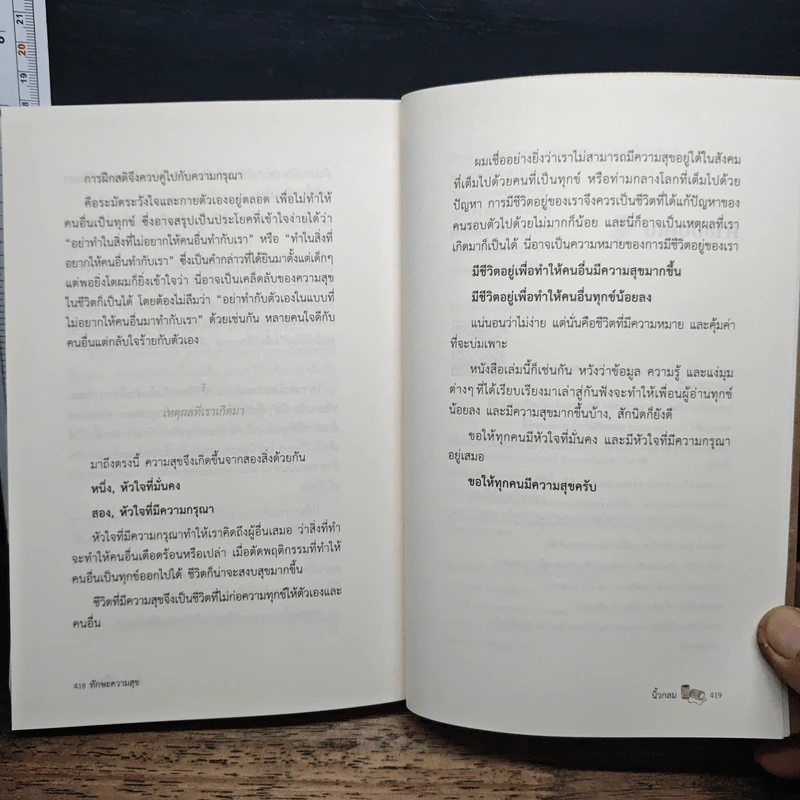 การฝึกสติจึงควบคู่ไปกับความกรุณา
คือระมัดระวังใจและกายตัวเองอยู่ตลอด เพื่อไม่ทำให้
คนอื่นเป็นทุกข์ ซึ่งอาจสรุปเป็นประโยคที่เข้าใจง่ายได้ว่า
“อย่าทำในสิ่งที่ไม่อยากให้คนอื่นทำกับเรา” หรือ “ทำในสิ่งที่
อยากให้คนอื่นทำกับเรา” ซึ่งเป็นคำกล่าวที่ได้ยินมาตั้งแต่เด็กๆ
แต่พอยิ่งโตผมก็ยิ่งเข้าใจว่า นี่อาจเป็นเคล็ดลับของความสุข
ในชีวิตก็เป็นได้ โดยต้องไม่ลืมว่า “อย่าทำกับตัวเองในแบบที่
ไม่อยากให้คนอื่นมาทำกับเรา” ด้วยเช่นกัน หลายคนใจดีกับ
คนอื่นแต่กลับใจร้ายกับตัวเอง
7
เหตุผลที่เราเกิดมา
มาถึงตรงนี้ ความสุขจึงเกิดขึ้นจากสองสิ่งด้วยกัน
หนึ่ง, หัวใจที่มั่นคง
สอง, หัวใจที่มีความกรุณา
หัวใจที่มีความกรุณาทำให้เราคิดถึงผู้อื่นเสมอ ว่าสิ่งที่ทำ
จะทำให้คนอื่นเดือดร้อนหรือเปล่า เมื่อตัดพฤติกรรมที่ทำให้
คนอื่นเป็นทุกข์ออกไปได้ ชีวิตก็น่าจะสงบสุขมากขึ้น
ชีวิตที่มีความสุขจึงเป็นชีวิตที่ไม่ก่อความทุกข์ให้ตัวเองและ
คนอื่น
418 ทักษะความสุข
ผมเชื่ออย่างยิ่งว่าเราไม่สามารถมีความสุขอยู่ได้ในสังคม
ที่เต็มไปด้วยคนที่เป็นทุกข์ หรือท่ามกลางโลกที่เต็มไปด้วย
ปัญหา การมีชีวิตอยู่ของเราจึงควรเป็นชีวิตที่ได้แก้ปัญหาของ
คนรอบตัวไปด้วยไม่มากก็น้อย และนี่ก็อาจเป็นเหตุผลที่เรา
เกิดมาก็เป็นได้ นี่อาจเป็นความหมายของการมีชีวิตอยู่ของเรา
มีชีวิตอยู่เพื่อทำให้คนอื่นมีความสุขมากขึ้น
มีชีวิตอยู่เพื่อทำให้คนอื่นทุกข์น้อยลง
แน่นอนว่าไม่ง่าย แต่นั่นคือชีวิตที่มีความหมาย และคุ้มค่า
ที่จะบ่มเพาะ
หนังสือเล่มนี้ก็เช่นกัน หวังว่าข้อมูล ความรู้ และแง่มุม
ต่างๆ ที่ได้เรียบเรียงมาเล่าสู่กันฟังจะทำให้เพื่อนผู้อ่านทุกข์
น้อยลง และมีความสุขมากขึ้นบ้าง, สักนิดก็ยังดี
ขอให้ทุกคนมีหัวใจที่มั่นคง และมีหัวใจที่มีความกรุณา
อยู่เสมอ
ขอให้ทุกคนมีความสุขครับ
นิ้วกลม 419
21
20
19
18